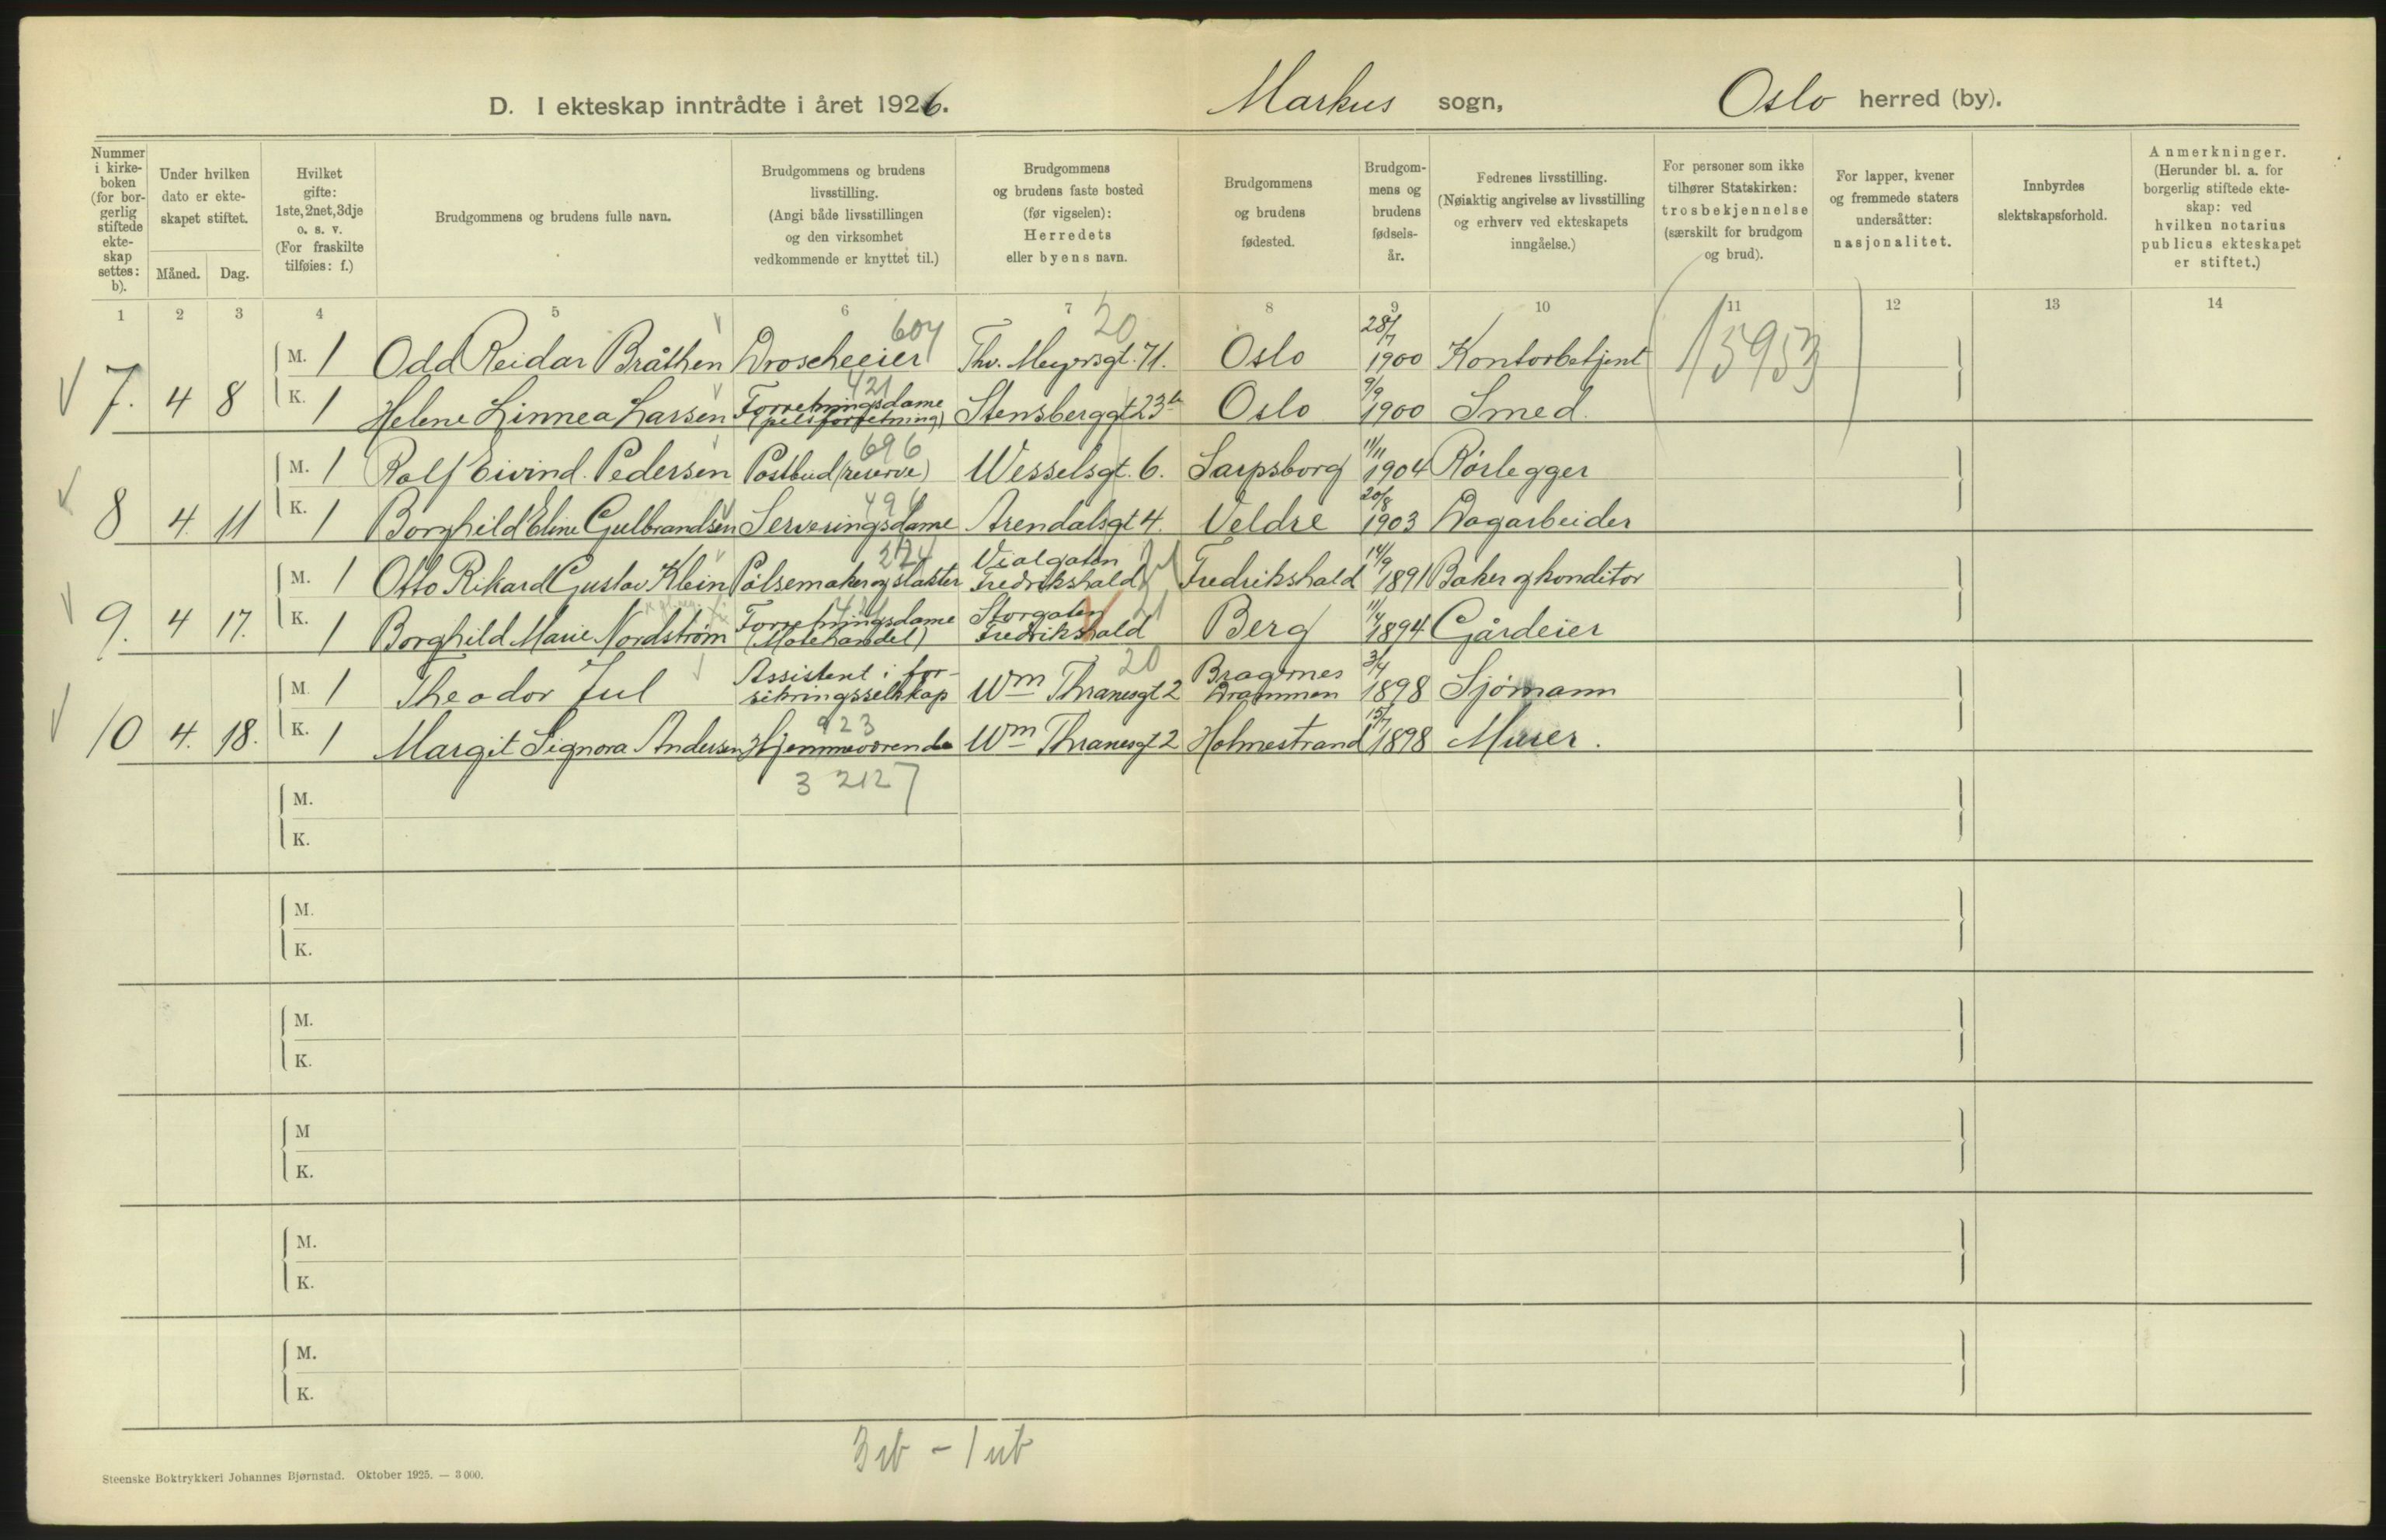 D. I ekteskap inntrådte i året 1926. Markus sogn, Oslo herred (by).
Nummer i kirke-boken (for bor-gerlig stiftede ekte-skap settes: b).
Under hvilken dato er ekte-skapet stiftet.
Måned. Dag.
Hvilket gifte: 1ste, 2net, 3dje o. s. v. (For fraskilte tilføies: f.)
Brudgommens og brudens fulle navn.
Brudgommens og brudens livsstilling. (Angi både livsstillingen og den virksomhet vedkommende er knyttet til.)
Brudgommens og brudens faste bosted (før vigselen): Herredets eller byens navn.
Brudgommens og brudens fødested.
Brudgom-mens og brudens fødsels-år.
Fedrenes livsstilling. (Nøiaktig angivelse av livsstilling og erhverv ved ekteskapets inngåelse.)
For personer som ikke tilhører Statskirken: trosbekjennelse (særskilt for brudgom og brud).
For lapper, kvener og fremmede staters undersåtter: nasjonalitet.
Innbyrdes slektskapsforhold.
Anmerkninger. (Herunder bl. a. for borgerlig stiftede ekte-skap: ved hvilken notarius publicus ekteskapet er stiftet.)
1 2 3 4 5 6 7 8 9 10 11 12 13 14
604 20 28/7
M. 1 Odd Reidar Bråthen Droscheeier Thv. Meyersgt. 71. Oslo 1900 Kontorbetjent (15953)
421 9/9
7. 4 8 K. 1 Helene Linnea Larsen Forretningsdame (pelsforretning) Stensberggt 23 Oslo 1900 Smed.
696 11/11
M. 1 Rolf Eivind Pedersen Postbud (reserve) Wesselsgt. 6. Sarpsborg 1904 Rørlegger
496 20/8
8 4. 11 K. 1 Borghild Eline Gulbrandsen Serveringsdame Arendalsgt 4. Veldre 1903 Dagarbeider
274 14/9
M. 1 Otto Rikard Gustav Klein Pølsemaker og slakter Vialgaten Fredrikshald 21 Fredrikshald 1891 Baker og konditor
421 11/4
9. 4 17. K. 1 Borghild Marie Nordstrøm Forretningsdame (Motehandel) Storgaten Fredrikshald 21 Berg 1894 Gårdeier
20 3/4
M. 1 Theodor Jul Assistent i for-sikringsselskap Wm Thranesgt 2 Bragernes Drammen 1898 Sjømann
923 15/7
10 4. 18. K. 1 Margit Signora Andersen Hjemmeværende Wm Thranesgt 2 Holmestrand 1898 Murer.
3 2127
M.
K.
M.
K.
M.
K.
M
K.
M.
K.
M.
K.
Steenske Boktrykkeri Johannes Bjørnstad. Oktober 1925. — 3 000.